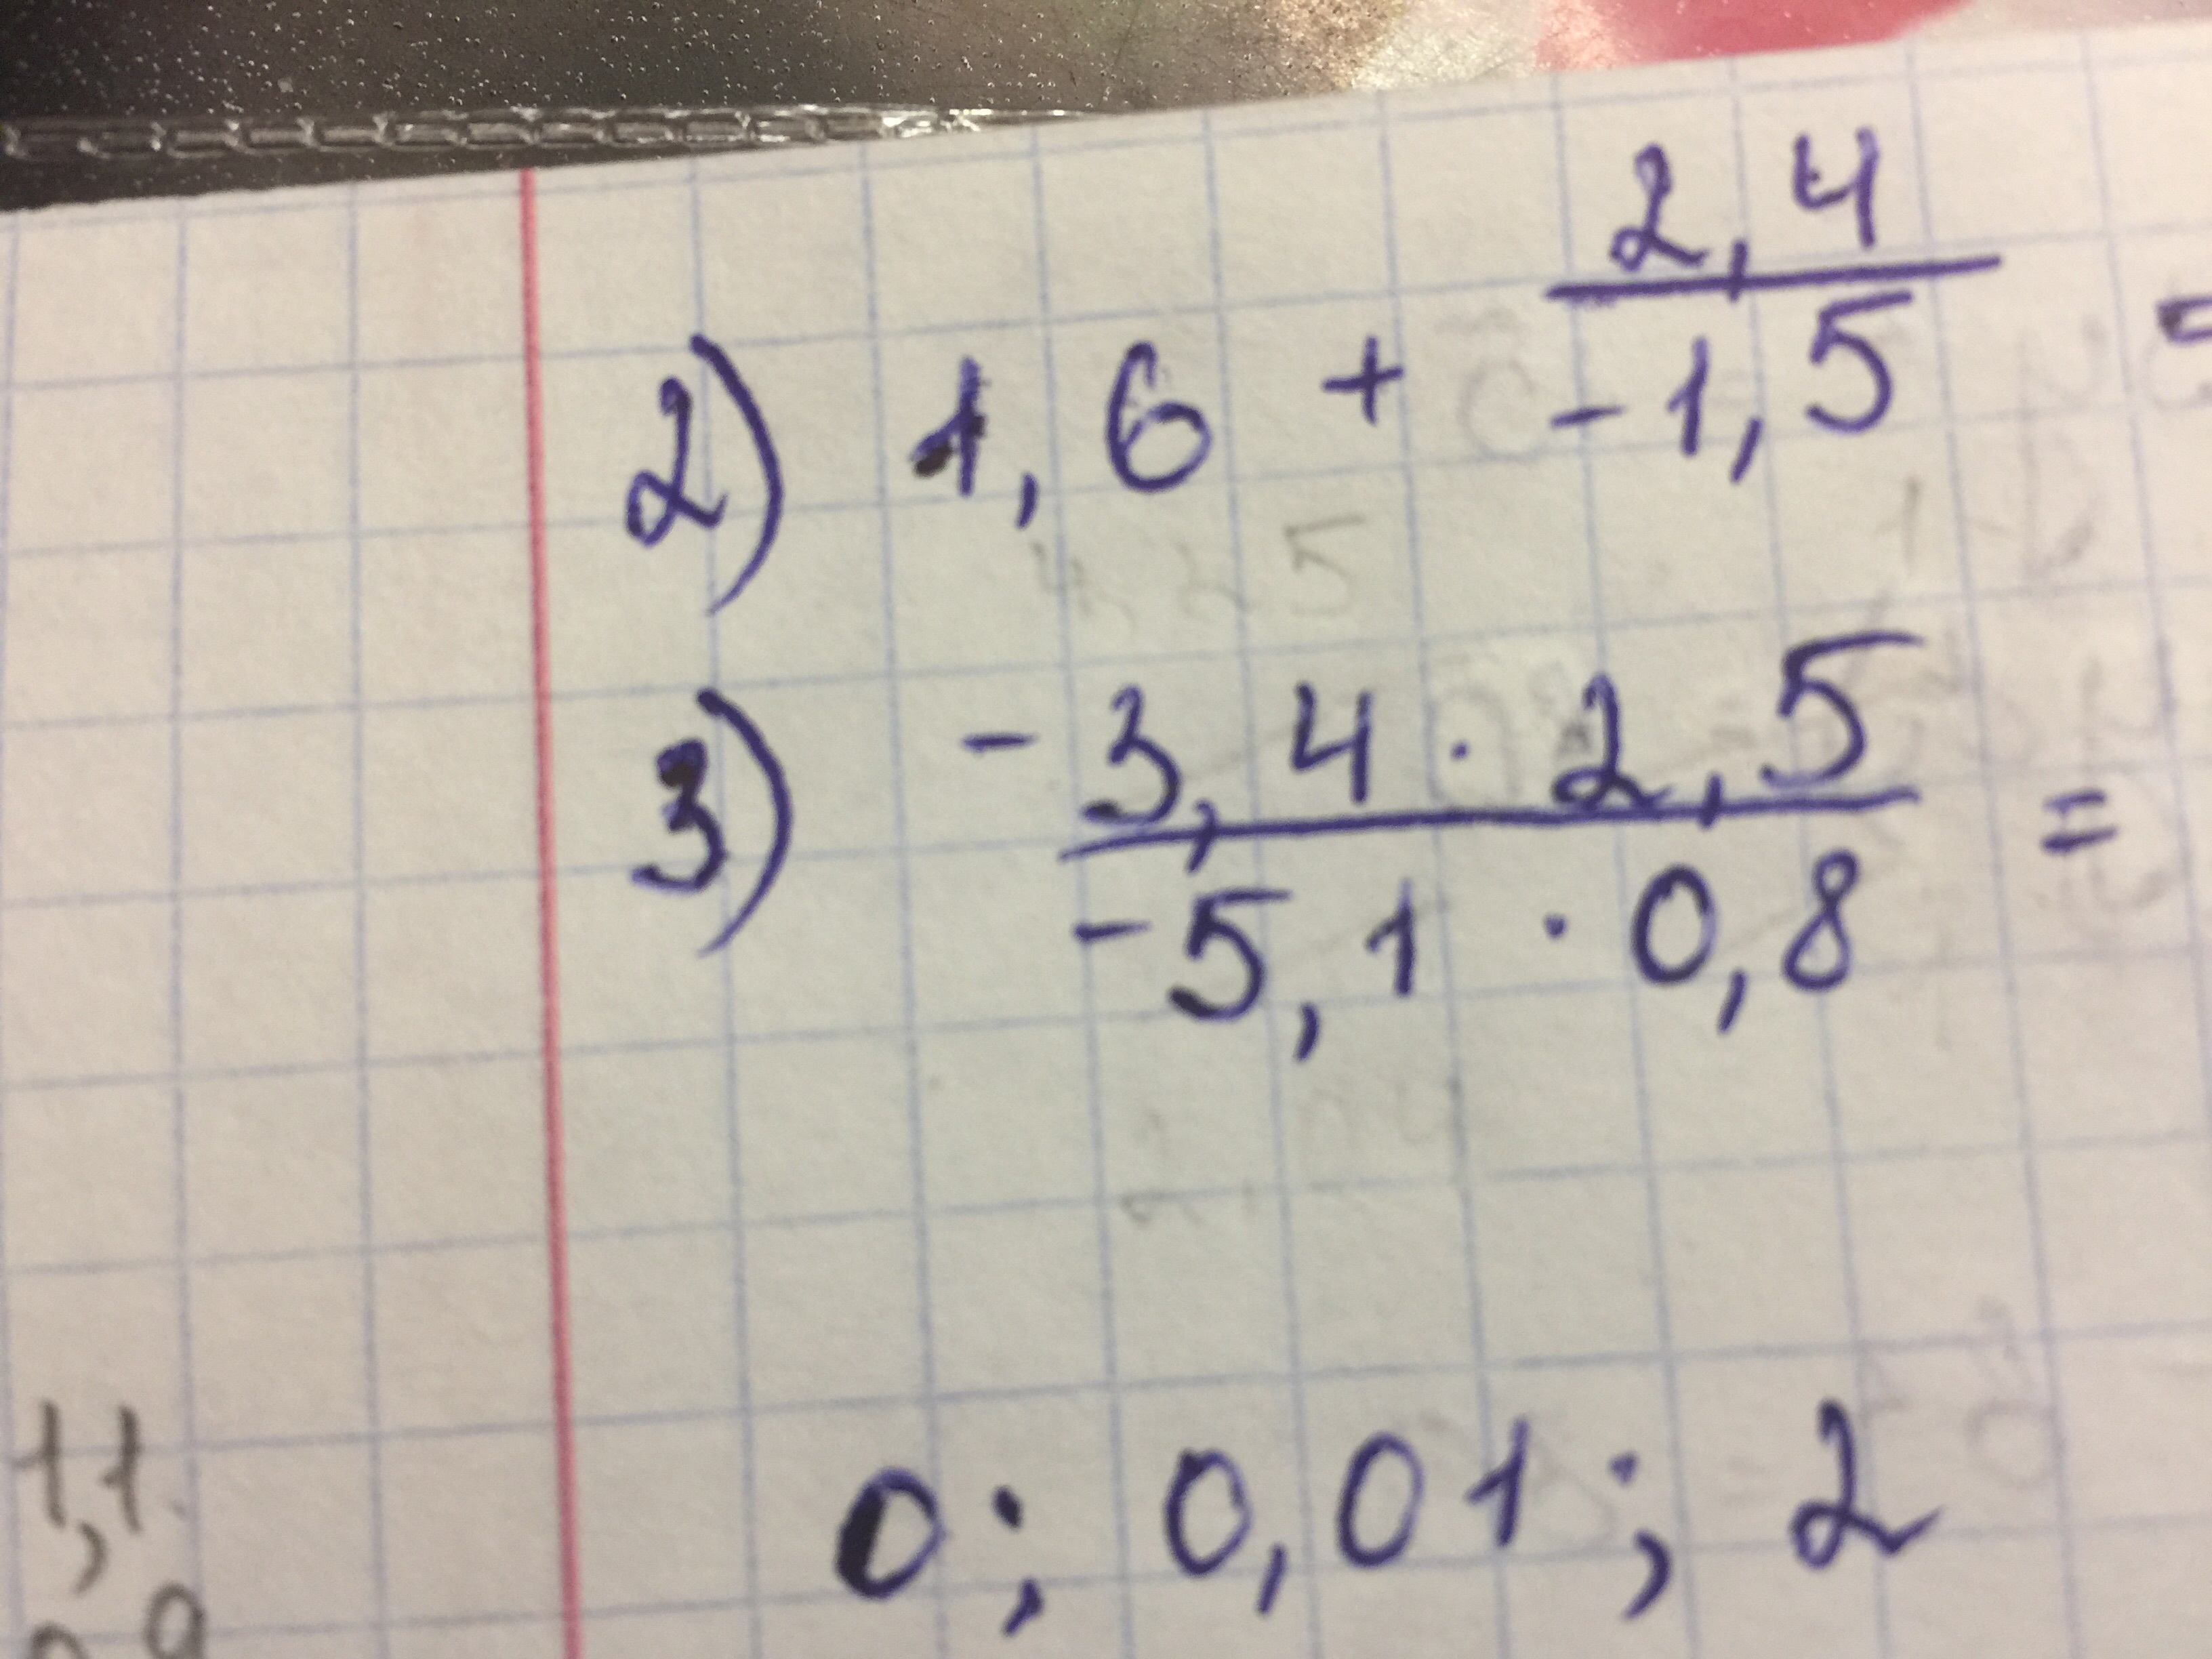 2) 1,6 + 2,4 / -1,5 =
3) -3,4 · 2,5 / -5,1 · 0,8 =
0; 0,01; 2
1,1